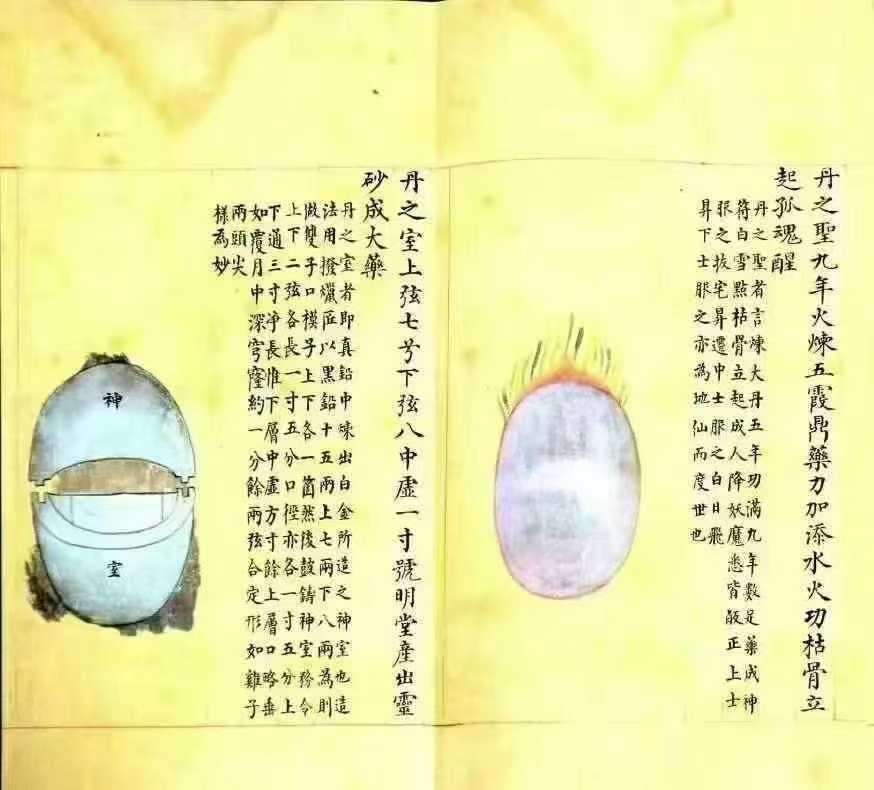 丹之聖九年火煉五霞鼎藥力加添水火功枯骨立
起孤魂醒
丹之聖者言煉大丹五年功滿九年數是藥成神
符白雪點枯骨立起成人降妖魔悉皆皈正上士
服之拔宅昇遷中士服之白日飛
昇下士服之亦為地仙而度世也
丹之室上弦七兮下弦八中虛一寸號明堂產出靈
砂成大藥
丹之室者即真鉛中煉出白金所造之神室也造
法用撥蠟匠以黑鉛十五兩上七兩下八兩為則
做雙子口模子上下各一箇然後鼓鑄神室務令
上下二弦各長一寸五分口徑亦各一寸五分上
下通三寸淨長惟下層中虛方寸餘上層口略垂
如覆月中深穹窿約一分餘兩弦合定形如雞子
兩頭尖
樣為妙
神
室